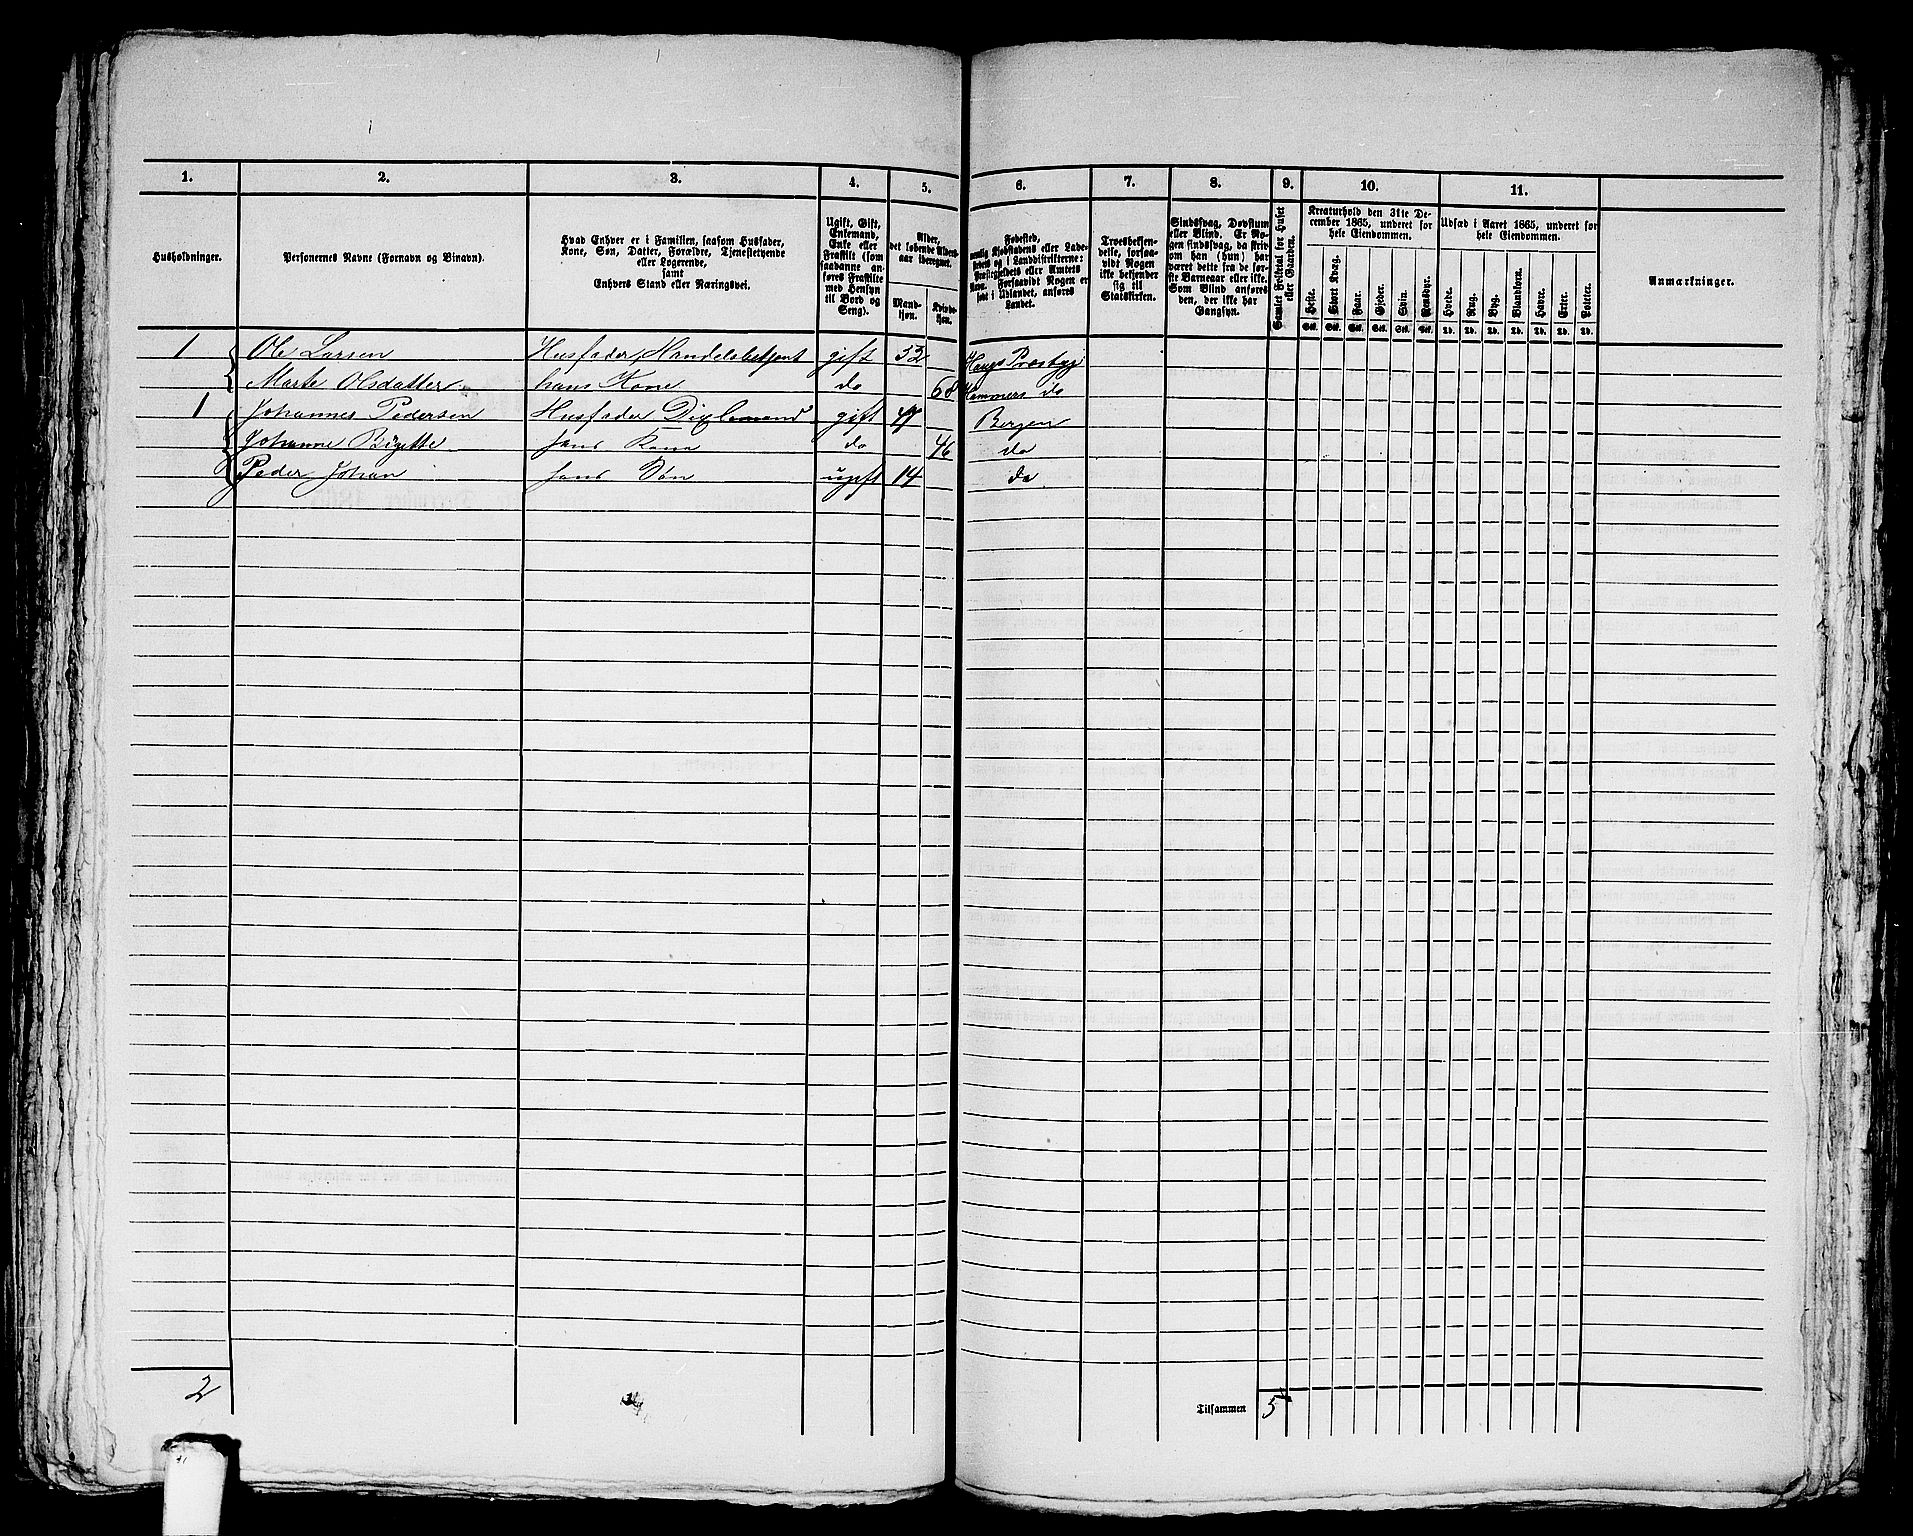 1. 2. 3. 4. 5. 6. 7. 8. 9. 10. 11.
Husholdninger.
Personernes Navne (Fornavn og Binavn).
Hvad Enhver er i Familien, saasom Husfader,
Kone, Søn, Datter, Forældre, Tjenestetyende
eller Logerende,
samt
Enhvers Stand eller Næringsvei.
Ugift, Gift,
Enkemand,
Enke eller
Fraskilt (som
saadanne an-
føres Fraskilte
med Hensyn
til Bord og
Seng).
Alder,
det løbende Alders-
aar iberegnet.
Mand-
kjøn.
Kvinde-
kjøn.
Fødested,
nemlig Kjøbstadens eller Lade-
stedets og i Landdistrikterne:
Præstegjeldets eller Amtets
Navn. Forsaavidt Nogen er
født i Udlandet, anføres
Landet.
Troesbekjen-
delse, forsaa-
vidt Nogen
ikke bekjender
sig til
Statskirken.
Sindssvag, Døvstum
eller Blind. Er No-
gen sindssvag, da skriv-
es om han (hun) har
været dette fra de før-
ste Barneaar eller ikke.
Som Blind anføres
den, der ikke har
Gangsyn.
Samlet Folketal for Huset
eller Gaarden.
Kreaturhold den 31te De-
cember 1865, underet for
hele Eiendommen.
Heste. Stort Kvæg. Faar. Gjeder. Svin. Rensdyr.
Stk. Stk. Stk. Stk. Stk. Stk.
Udsæd i Aaret 1865, underet for
hele Eiendommen.
Hvede. Rug. Byg. Blandkorn. Havre. Erter. Poteter.
Td. Td. Td. Td. Td. Td. Td.
Anmærkninger.
1 Ole Larsen Husfader, Handelsbetjent gift 53 Haugs Præstgj
Marte Olsdatter hans Kone do 68 Hammers do
1 Johannes Pedersen Husfader gift 47 Bergen
Johanne Birgitte hans Kone do 46 do
Peder Johan hans Søn ugift 14 do
2
Tilsammen 5